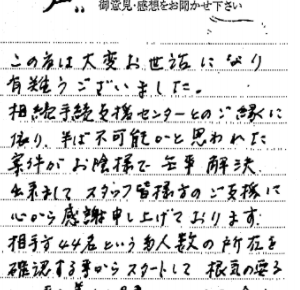 御意見・感想をお聞かせ下さい
この度は大変お世話になり
有難うございました。
相続手続支援センターとのご縁に
依り、半ば不可能かと思われた
案件がお陰様で無事解決
出来まして スタッフ皆様方のご支援に
心から感謝申し上げております。
相手方44名という多人数の所在を
確認する事からスタートして 根気の要る